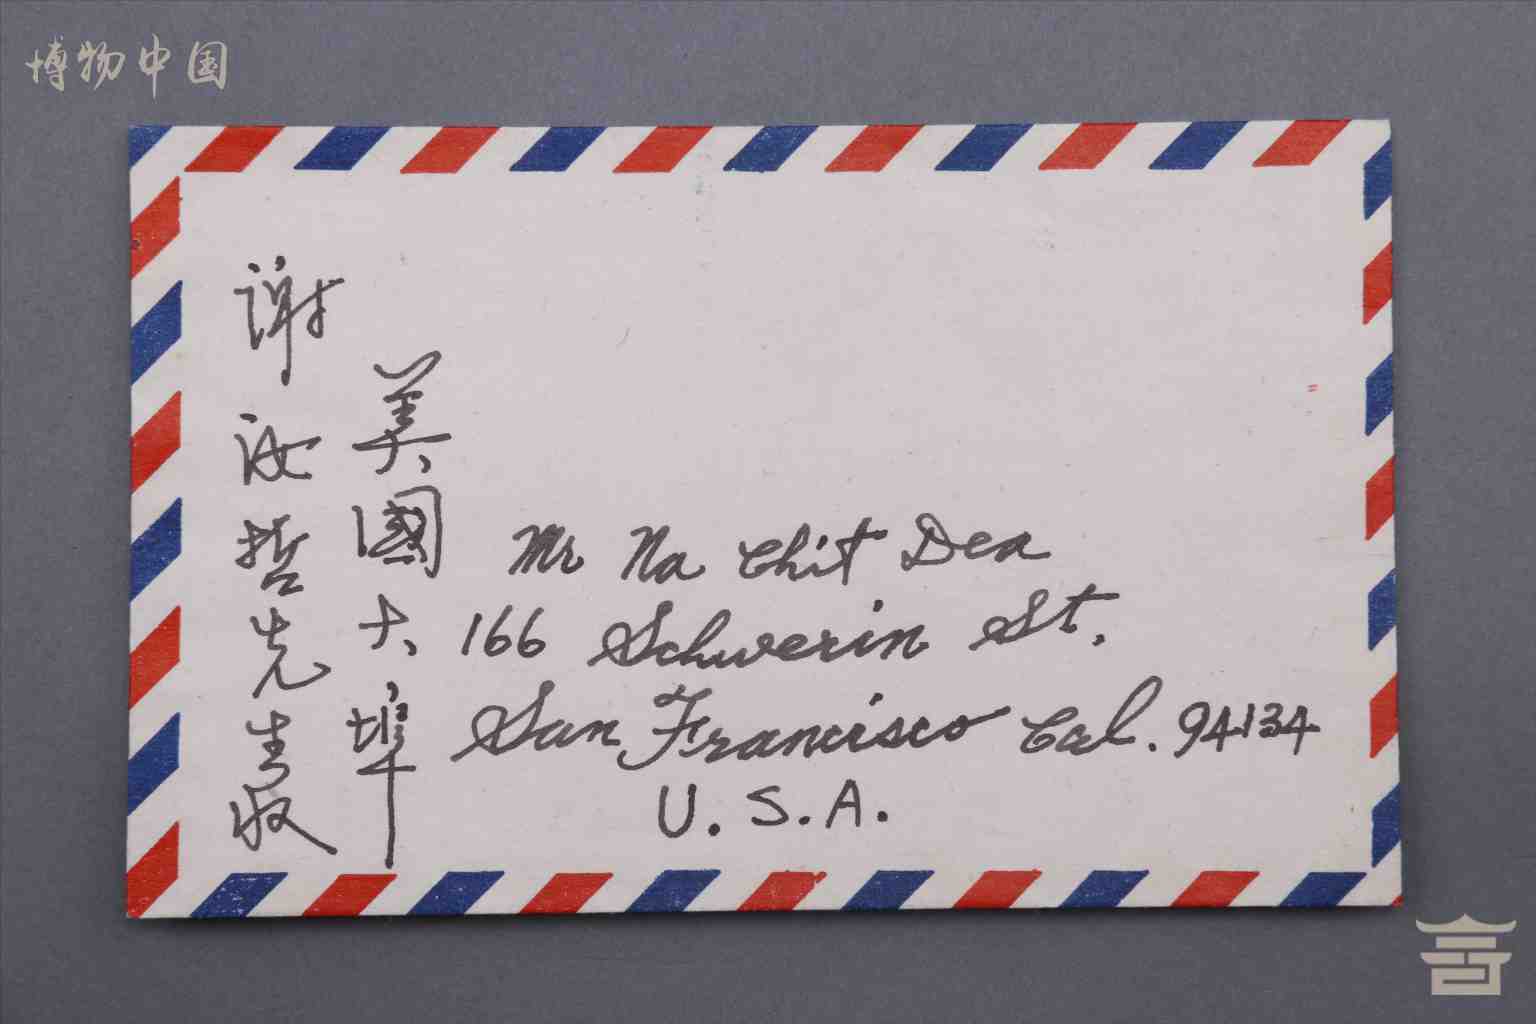 博物中国
美國大埠
謝汝哲先生收
Mr Na Chit Dea
166 Schwerin St.
San Francisco Cal. 94134
U.S.A.